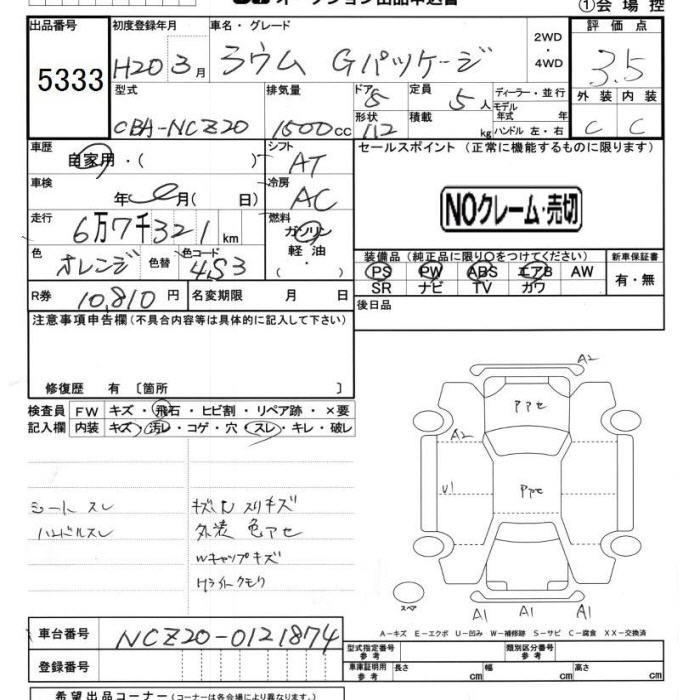 オークション出品申込書
①会場控
出品番号 5333
初度登録年月 H20 3月
車名・グレード ラウム Gパッケージ
2WD ・ 4WD
評価点 3.5
外装 C 内装 C
型式 CBA-NCZ20
排気量 1500cc
ドア 5
形状 112
定員 5人
積載 kg
ディーラー・並行
モデル年式 年
ハンドル 左・右
車歴 自家用・( )
シフト AT
セールスポイント (正常に機能するものに限ります)
NOクレーム・売切
車検 年 月( 日)
冷房 AC
走行 6万7千321km
燃料 ガソリン 軽油 ( )
色 オレンジ 色替 色コード 4S3
装備品(純正品に限り○をつけてください)
新車保証書 有・無
PS PW ABS エアB AW
SR ナビ TV カワ
R券 10,810円 名変期限 月 日
後日品
注意事項申告欄(不具合内容等は具体的に記入して下さい)
修復歴 有 〔箇所 〕
検査員記入欄
FW キズ・飛石・ヒビ割・リペア跡・×要
内装 キズ・汚レ・コゲ・穴・スレ・キレ・破レ
シート スレ
ハンドルスレ
キズ凹 スリキズ
外装 色アセ
Wキャップキズ
Hライトクモリ
A2
アアセ
A2
U1
アアセ
スペア
A1 A1 A1
A-キズ E-エクボ U-凹み W-補修跡 S-サビ C-腐食 XX-交換済
車台番号 NCZ20-0121874
登録番号
型式指定番号 参考
類別区分番号 参考
車庫証明用 参考 長さ cm 幅 cm 高さ cm
希望出品コーナー(コーナーは各会場により異なります。)